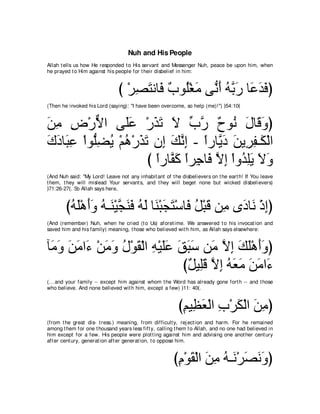 Nuh and His People
Allah tells us how He responded to His servant and Messenger Nuh, peace be upon him, when
he prayed to Him against his people for their disbelief in him:
﴿فَدَعَا رَبَّهُ أَنُّى مَغْلُوبٌ فَانتَصِرْ ﴾
(Then he invoked his Lord (saying): "I have been overcome, so help (me)!'') ﴿54:10﴾
﴿وَقَالَ نُوحٌ رَّبِّ لاَ تَذَرْ عَلَى الاٌّرْضِ مِنَ
الْكَـفِرِينَ دَيَّاراً - إِنَّكَ إِن تَذَرْهُمْ يُضِلُّواْ عِبَادَكَ
وَلاَ يَلِدُواْ إِلاَّ فَاجِراً كَفَّاراً ﴾
(And Nuh said: "My Lord! Leave not any inhabitant of the disbelievers on the earth! If You leave
them, they will mislead Your servants, and they will beget none but wicked disbelievers)
﴿71:26-27﴾. So Allah says here,
﴿إِذْ نَادَى مِن قَبْلُ فَاسْتَجَبْنَا لَهُ فَنَجَّيْنَـهُ وَأَهْلَهُ﴾
(And (remember) Nuh, when he cried (to Us) aforetime. We answered to his invocation and
saved him and his family) meaning, those who believed with him, as Allah says elsewhere:
﴿وَأَهْلَكَ إِلاَّ مَن سَبَقَ عَلَيْهِ الْقَوْلُ وَمَنْ ءَامَنَ وَمَآ
ءَامَنَ مَعَهُ إِلاَّ قَلِيلٌ﴾
(...and your family -- except him against whom the Word has already gone forth -- and those
who believe. And none believed with him, except a few) ﴿11: 40﴾.
﴿مِنَ الْكَرْبِ الْعَظِيمِ﴾
(from the great dis- tress.) meaning, from difficulty, rejection and harm. For he remained
among them for one thousand years less fifty, calling them to Allah, and no one had believed in
him except for a few. His people were plotting against him and advising one another century
after century, generation after generation, to oppose him.
﴿وَنَصَرْنَـهُ مِنَ الْقَوْمِ﴾